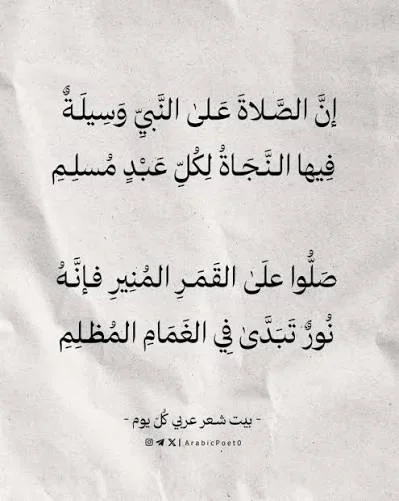 إنَّ الصَّلاةَ عَلىٰ النَّبيِّ وَسِيلَةٌ
فِيها النَّجَاةُ لِكُلِّ عَبْدٍ مُسلِمِ
صَلُّوا علَىٰ القَمَرِ المُنِيرِ فإنَّهُ
نُورٌ تَبَدَّىٰ فِي الغَمَامِ المُظلِمِ
- بيت شعر عربي كُلّ يوم -
| ArabicPoet0